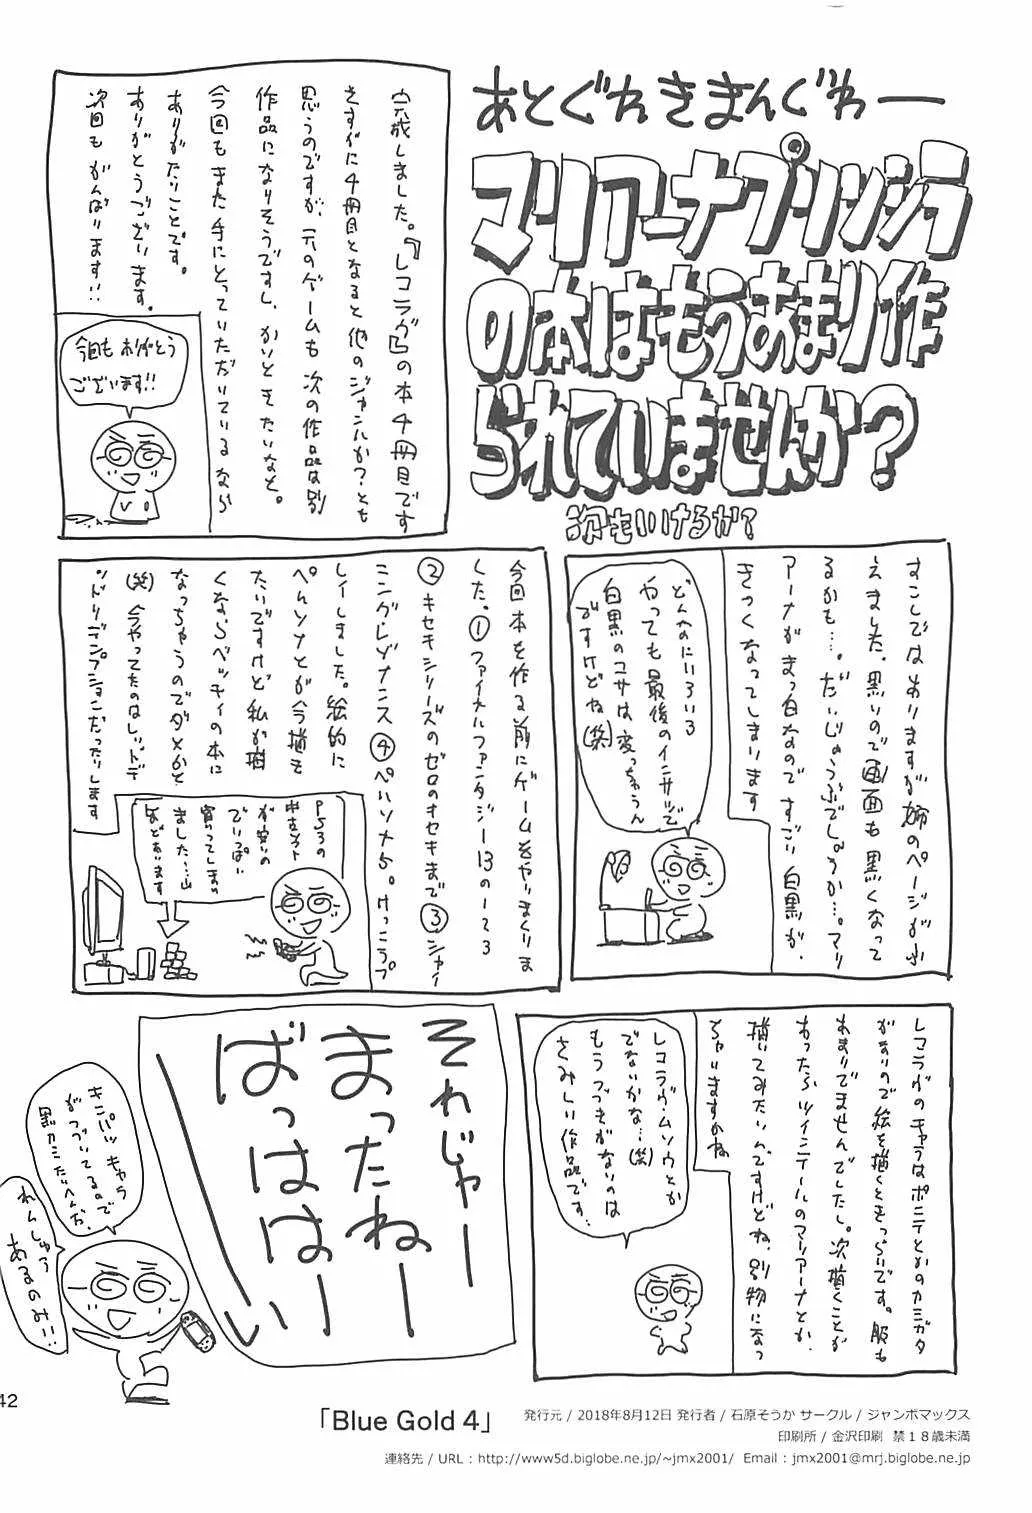 あとぐわきまんぐわー
マリアーナプリンシラ
の本はもうあまり作
られていませんか？
次もいけるか？
完成しました。『レコラヴ』の本4冊目です
さすがに4冊目となると他のジャンルか？とも
思うのですが、元のゲームも次の作品は別
作品になりそうですし、かいときたいなと。
今回もまた手にとっていただいているなら
ありがたいことです。
ありがとうございます。
次回もがんばります!!
今回もありがとう
ございます!!
すこしではありますが姉のページがふ
えました。黒いので画面も黒くなって
るかも…。だいじょうぶでしょうか…。マリ
アーナがまっ白なのですごい白黒が、
きつくなってしまいます
どんなにいろいろ
やっても最後のインサツで
白黒のコサは変っちゃうん
ですけどね(笑)
今回本を作る前にゲームをやりまくりま
した。①ファイナルファンタジー13の1〜3
②キセキシリーズのゼロのキセキまで③シャイ
ニング・レゾナンス④ペルソナ5。けっこうプ
レイしました。絵的に
ペルソナとが今描き
たいですけど私が描
くならベッティの本に
なっちゃうのでダメかと
(笑)今やってたのはレッドデ
ッドリデンプションだったりします
PS3の
中古ソフト
が安いの
でいっぱい
買ってしまい
ました…山
ほどあります
レコラヴのキャラはポニテとかのカミガタ
がないので絵を描くときつらいです。服も
あまりでませんでしたし。次描くことが
あったらツインテールのマリアーナとか、
描いてみたいんですけどね、別物になっ
ちゃいますかね
レコラヴ・ムソウとか
でないかな…(笑)
もうつづきがないのは
さみしい作品です…
それじゃー
まったねー
ばっははーい
キンパツキャラ
がつづいてるので
黒カミたいへんだ、
れんしゅう
あるのみ!!
42
「Blue Gold 4」
発行元 / 2018年8月12日 発行者 / 石原そうか サークル / ジャンボマックス
印刷所 / 金沢印刷 禁１８歳未満
連絡先 / URL : http://www5d.biglobe.ne.jp/~jmx2001/ Email : jmx2001@mrj.biglobe.ne.jp